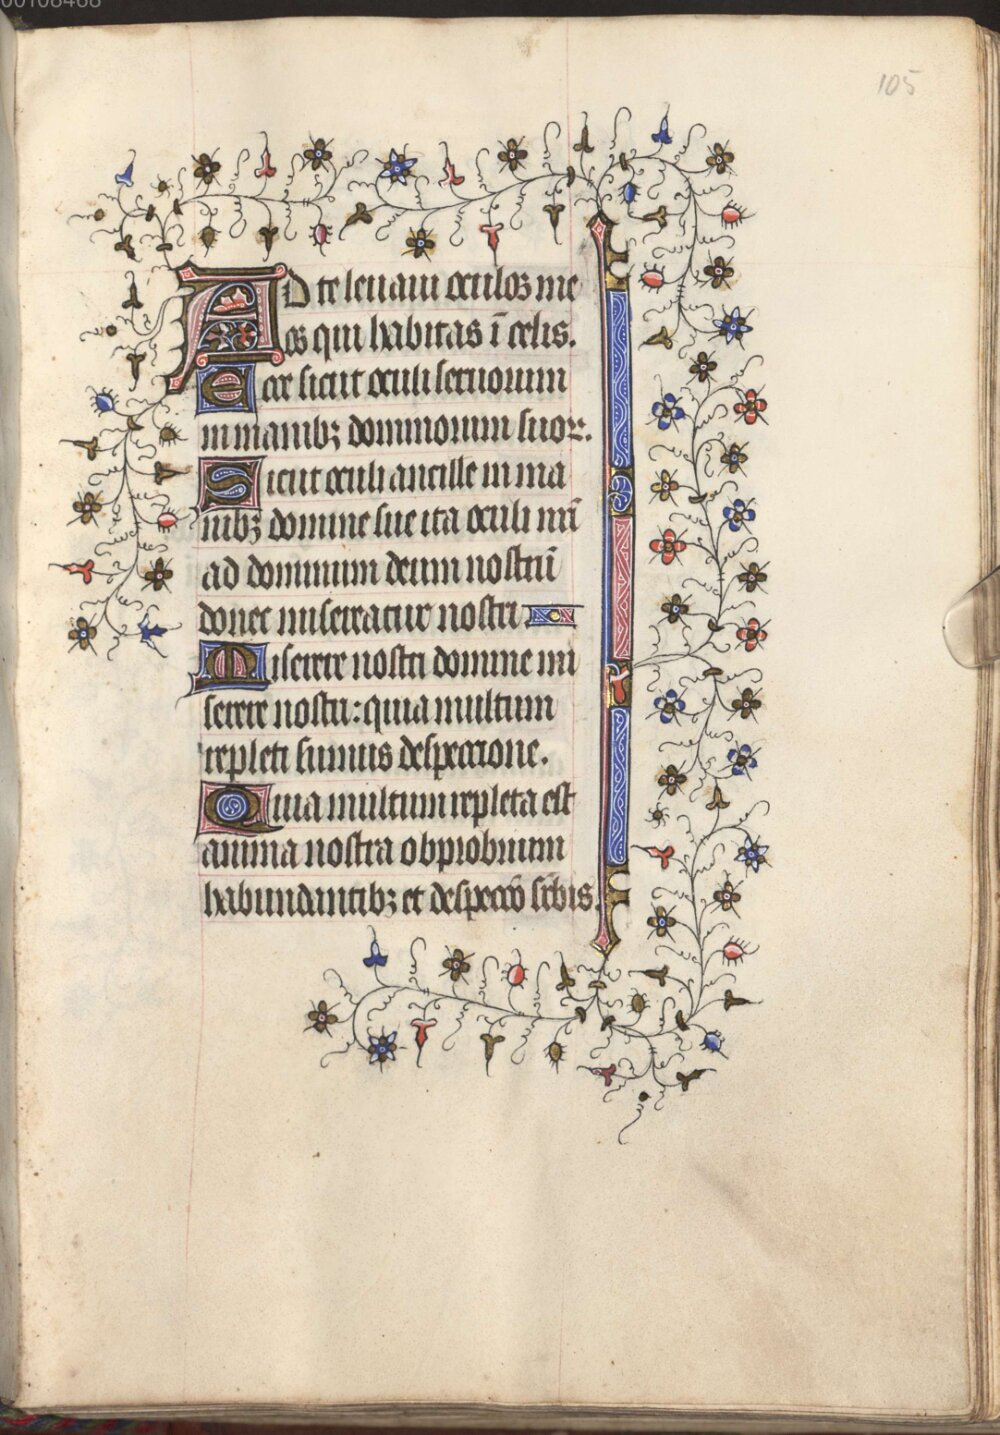 00108468
105
AD te leuaui oculos me
os qui habitas ī celis.
Ecce sicut oculi seruorum
in manibꝫ dominorum suoꝝ.
Sicut oculi ancille in ma
nibꝫ domine sue ita oculi nr̄i
ad dominum deum nostrū
donec misereatur nostri
Miserere nostri domine mi
serere nostri: quia multum
repleti sumus despectione.
Quia multum repleta est
anima nostra obprobrium
habundantibꝫ et despectō suꝑbis.